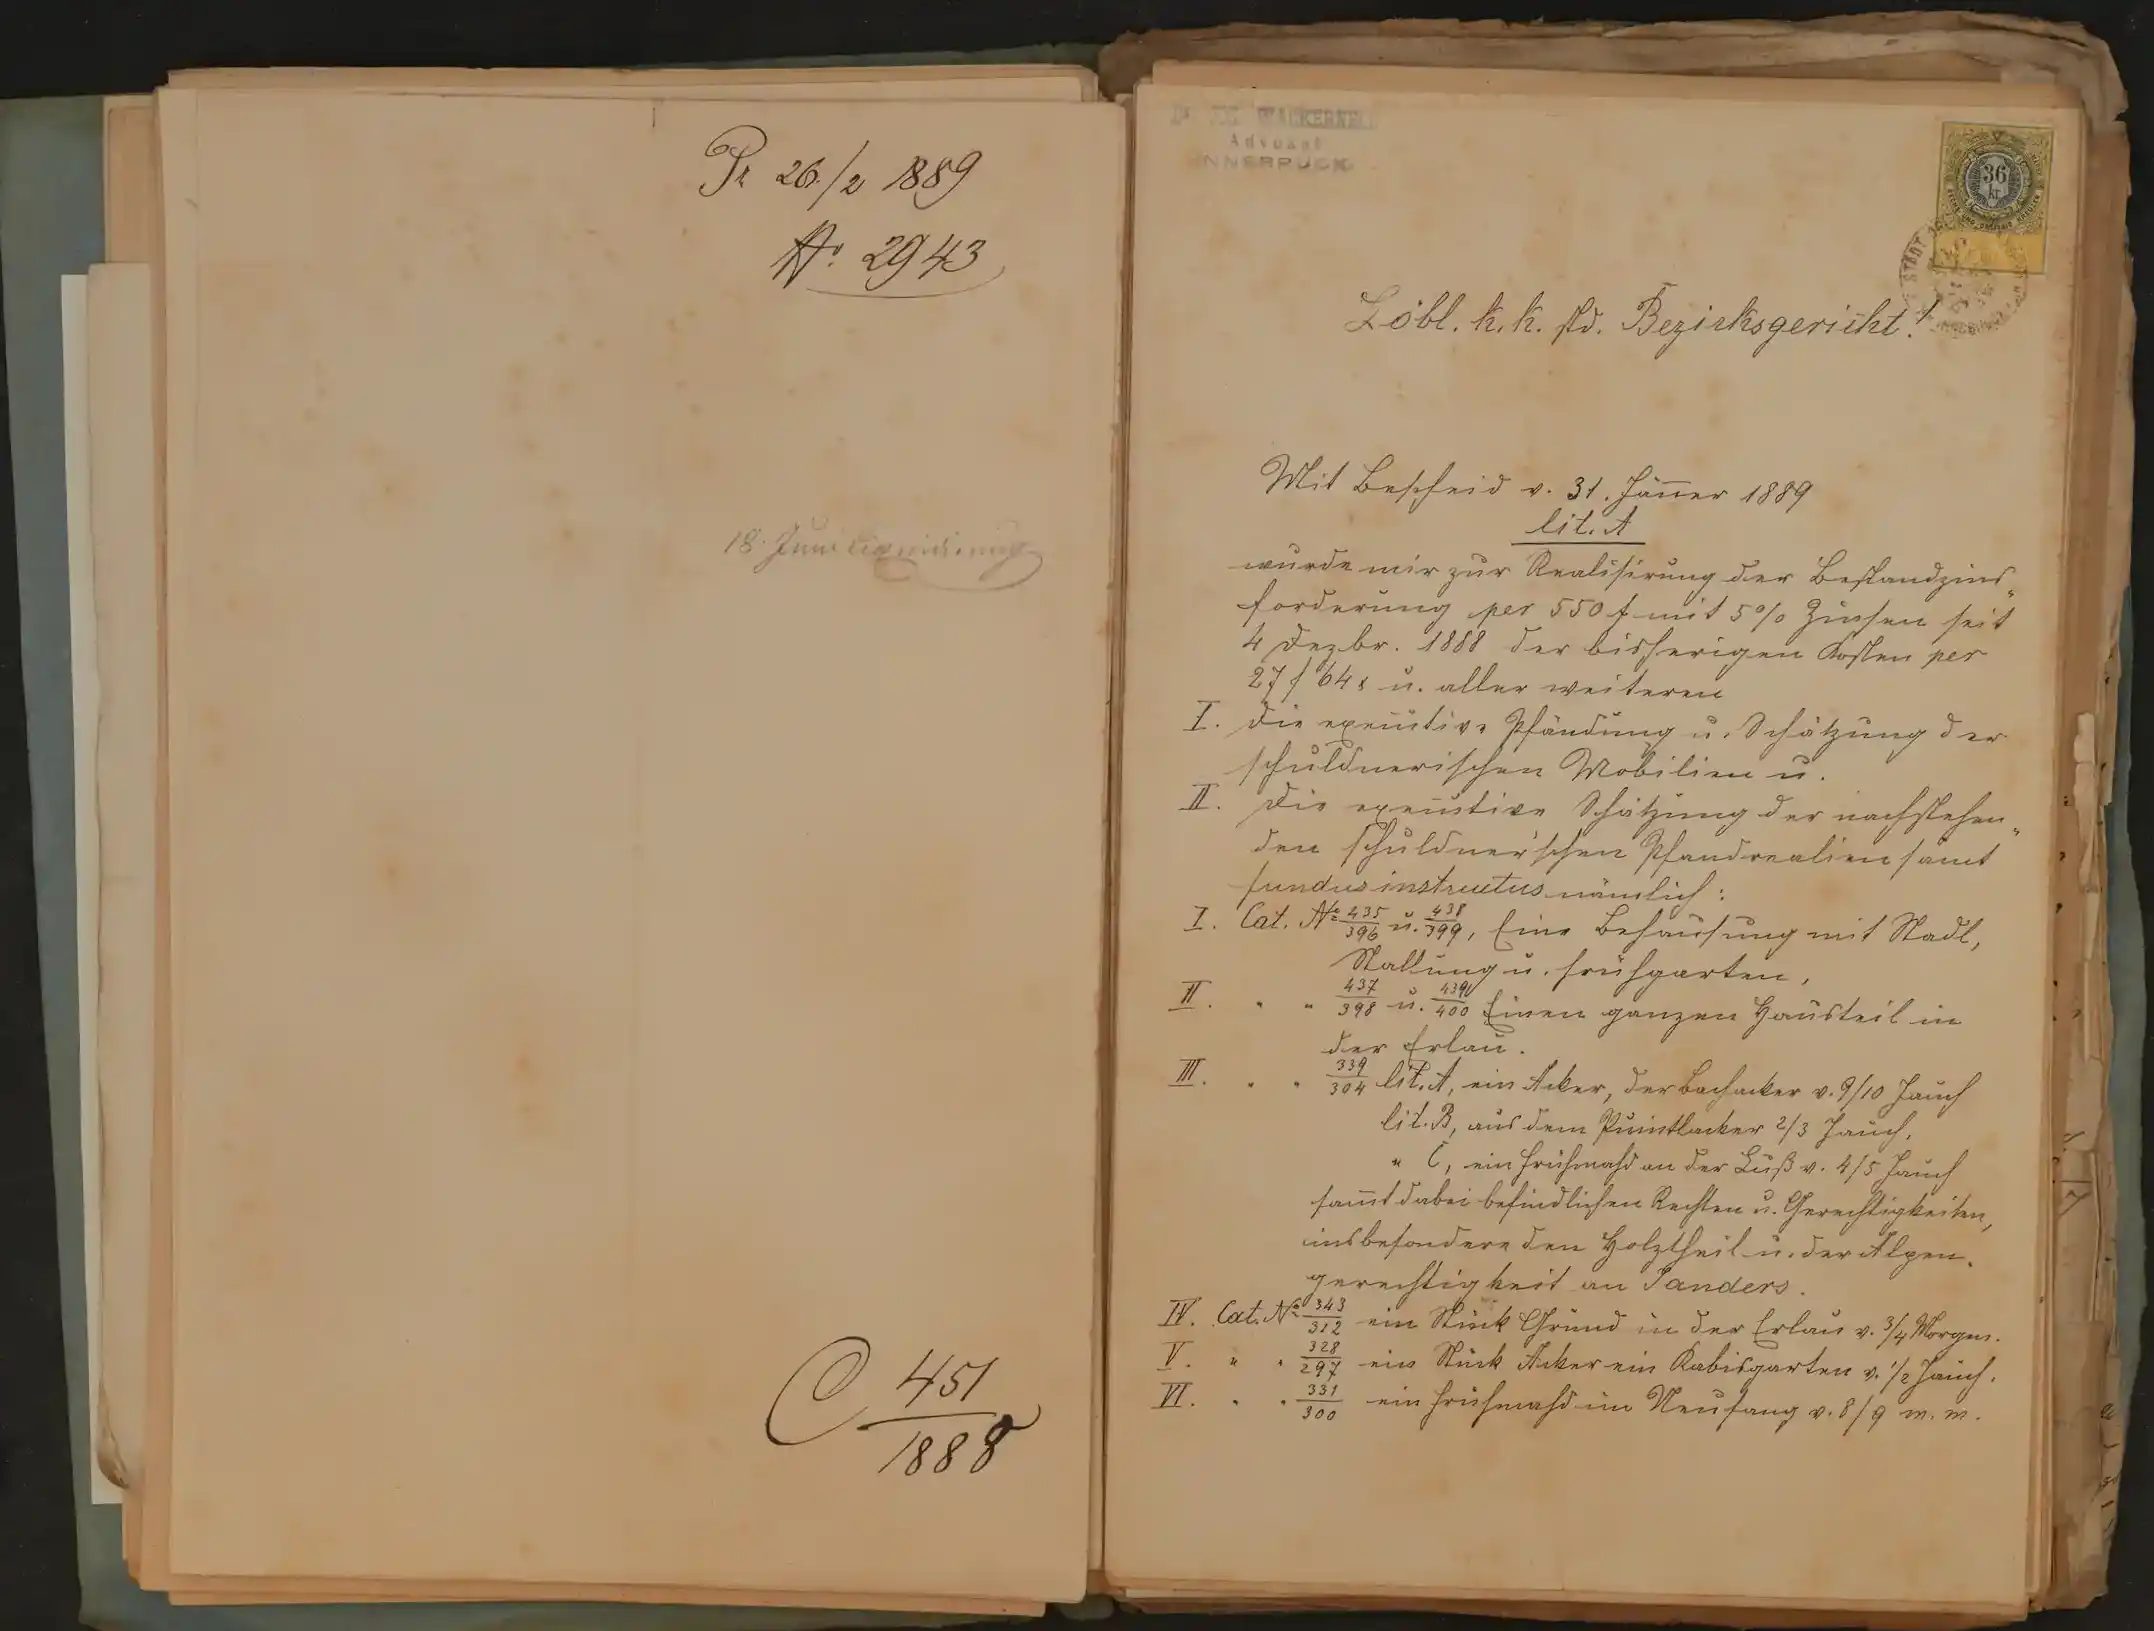 Pr 26./2 1889
No. 2943
18. Juni
C 451
1888
WACKERNELL
Advokat
INNSBRUCK
36
kr.
Löbl. k. k. std. Bezirksgericht!
Mit Bescheid v. 31. Jänner 1889
lit. A
wurde mir zur Realisirung der Bestandzins„
forderung per 550 f mit 5 % Zinsen seit
4 Dezbr. 1888 der bisherigen Kosten per
27 f 64 x u. aller weiteren
I. die executive Pfändung u. Schätzung der
schuldnerischen Mobilien u.
II. die executive Schätzung der nachstehen„
den schuldner'schen Pfandrealien samt
fundus instructus nämlich:
I. Cat. No 435/396 u. 438/399, Eine Behausung mit Stadl,
Stallung u. Frühgarten,
II. " " 437/398 u. 439/400 Einen ganzen Hausteil in
der Erlau.
III. " " 339/304 lit. A, ein Acker, der Bachacker v. 9/10 Jauch
lit. B, aus dem Puintlacker 2/3 Jauch,
" C, ein Frühmahd an der Luß v. 4/5 Jauch
sam̅t dabei befindlichen Rechten u. Gerechtigkeiten,
insbesondere den Holztheil u. der Alpen„
gerechtigkeit an Sanders.
IV. Cat. No 343/312 ein Stück Grund in der Erlau v. 3/4 Morgen.
V. " " 328/297 ein Stück Acker ein Kabisgarten v. 1/2 Jauch.
VI. " " 331/300 ein Frühmahd im Neufang v. 8/9 m. m.